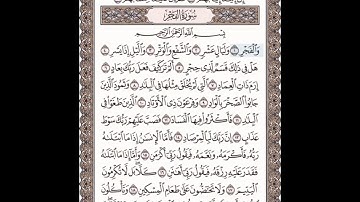 سُورَةُ الفَجۡرِ
بِسۡمِ ٱللَّهِ ٱلرَّحۡمَٰنِ ٱلرَّحِيمِ
وَٱلۡفَجۡرِ ١ وَلَيَالٍ عَشۡرٖ ٢ وَٱلشَّفۡعِ وَٱلۡوَتۡرِ ٣ وَٱلَّيۡلِ إِذَا يَسۡرِ ٤
هَلۡ فِي ذَٰلِكَ قَسَمٞ لِّذِي حِجۡرٍ ٥ أَلَمۡ تَرَ كَيۡفَ فَعَلَ رَبُّكَ بِعَادٍ ٦
إِرَمَ ذَاتِ ٱلۡعِمَادِ ٧ ٱلَّتِي لَمۡ يُخۡلَقۡ مِثۡلُهَا فِي ٱلۡبِلَٰدِ ٨ وَثَمُودَ ٱلَّذِينَ
جَابُواْ ٱلصَّخۡرَ بِٱلۡوَادِ ٩ وَفِرۡعَوۡنَ ذِي ٱلۡأَوۡتَادِ ١٠ ٱلَّذِينَ طَغَوۡاْ فِي
ٱلۡبِلَٰدِ ١١ فَأَكۡثَرُواْ فِيهَا ٱلۡفَسَادَ ١٢ فَصَبَّ عَلَيۡهِمۡ رَبُّكَ سَوۡطَ
عَذَابٍ ١٣ إِنَّ رَبَّكَ لَبِٱلۡمِرۡصَادِ ١٤ فَأَمَّا ٱلۡإِنسَٰنُ إِذَا مَا ٱبۡتَلَىٰهُ
رَبُّهُۥ فَأَكۡرَمَهُۥ وَنَعَّمَهُۥ فَيَقُولُ رَبِّيٓ أَكۡرَمَنِ ١٥ وَأَمَّآ إِذَا مَا ٱبۡتَلَىٰهُ
فَقَدَرَ عَلَيۡهِ رِزۡقَهُۥ فَيَقُولُ رَبِّيٓ أَهَٰنَنِ ١٦ كَلَّاۖ بَل لَّا تُكۡرِمُونَ
ٱلۡيَتِيمَ ١٧ وَلَا تَحَٰٓضُّونَ عَلَىٰ طَعَامِ ٱلۡمِسۡكِينِ ١٨ وَتَأۡكُلُونَ